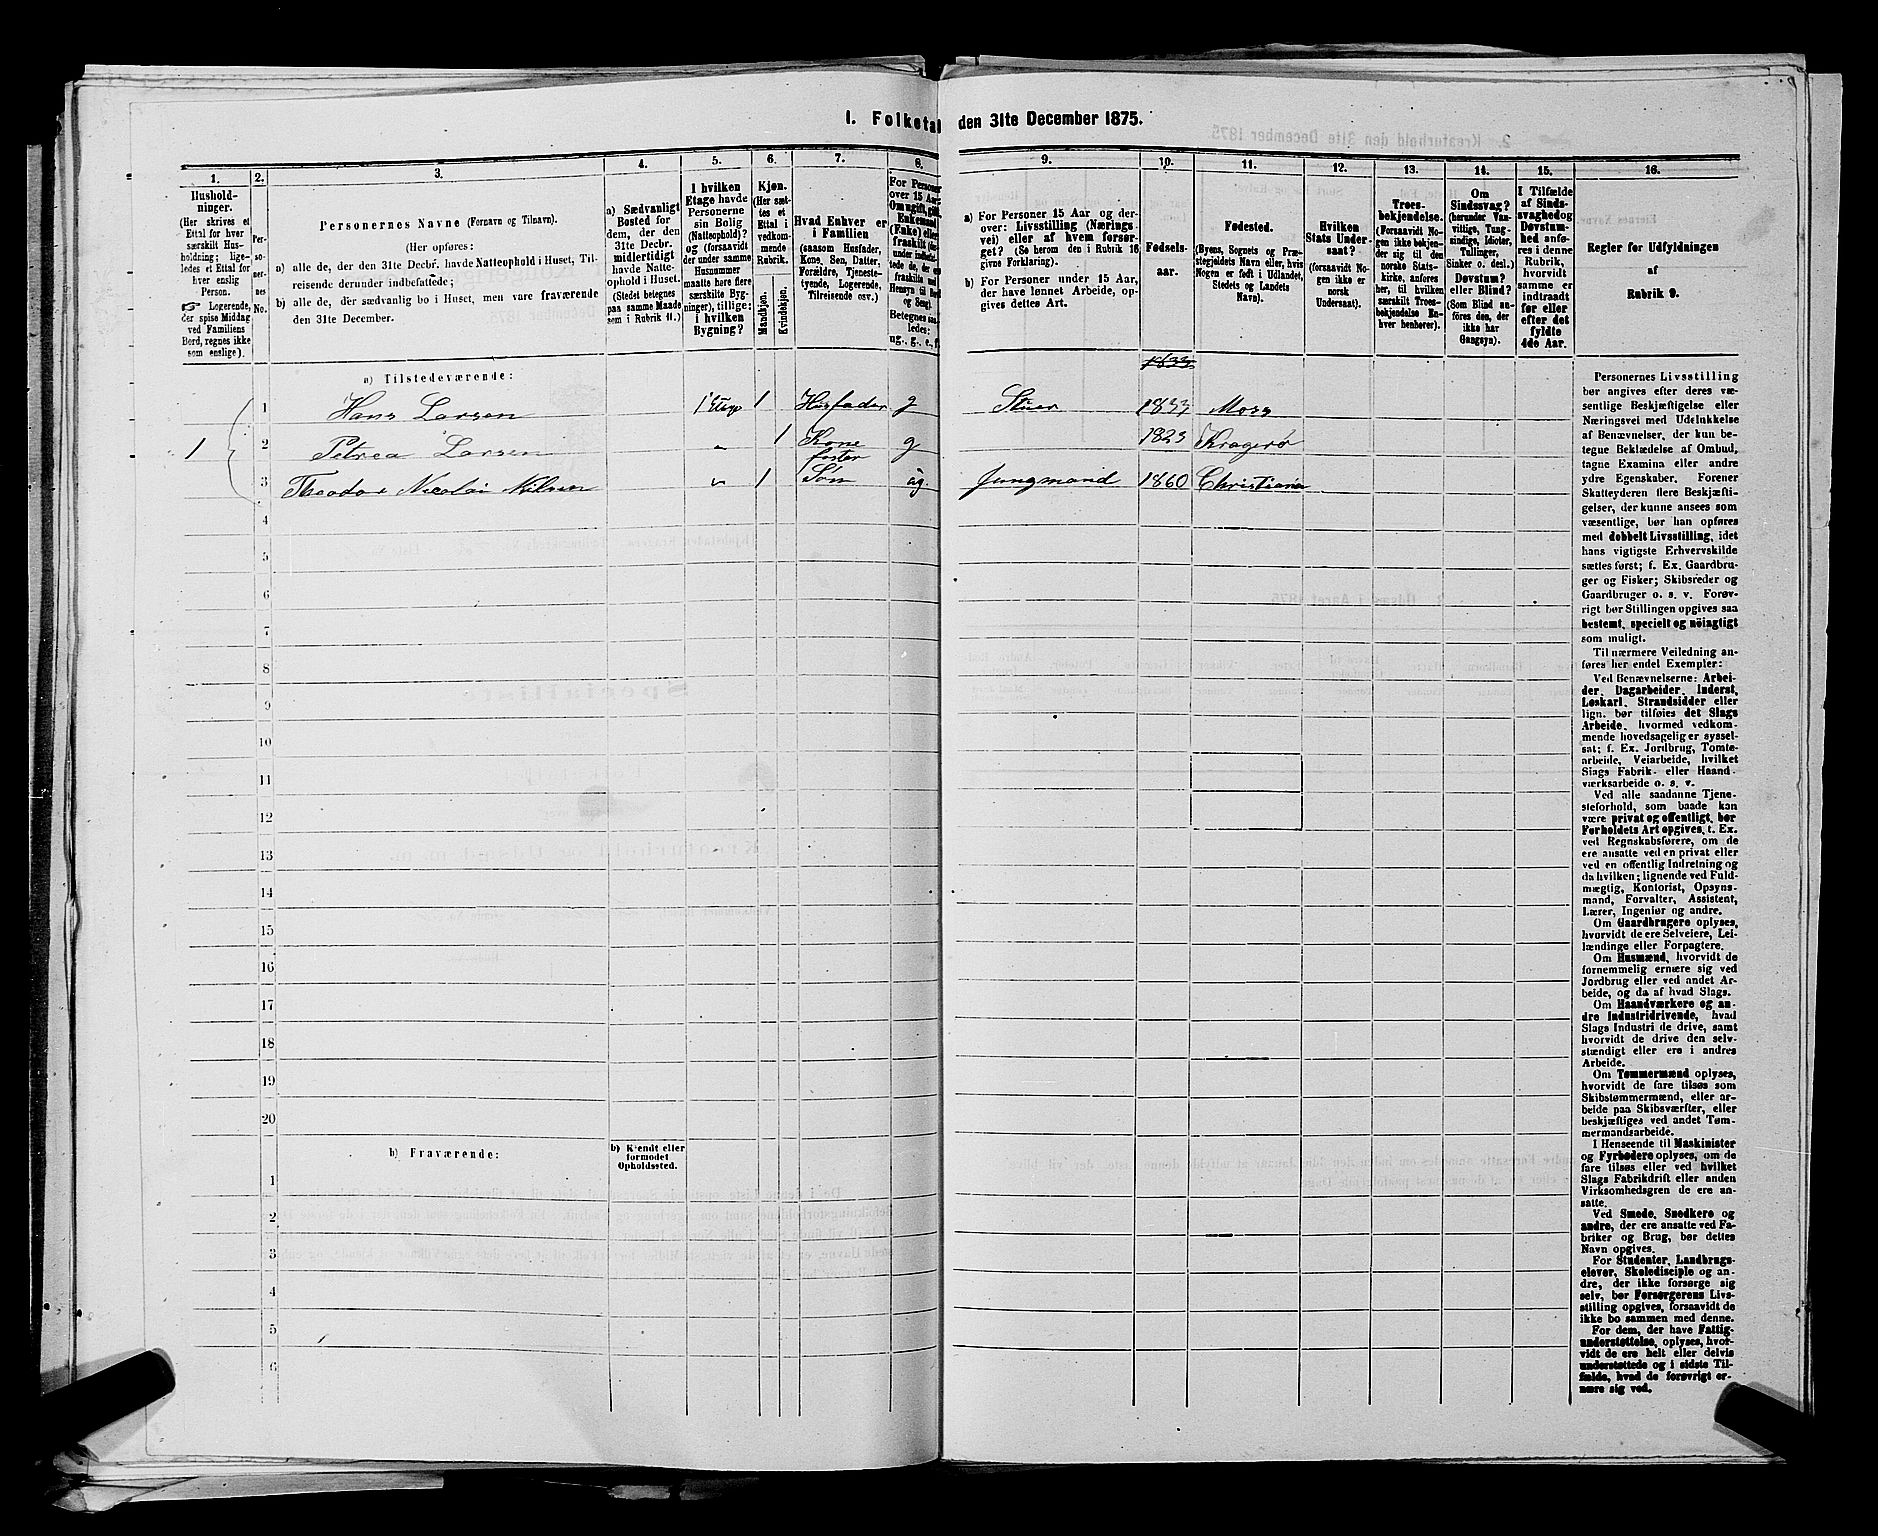 I. Folketal den 31te December 1875.
1.
Hushold-
ninger.
(Her skrives et
Ettal for hver
særskilt Hus-
holdning; lige-
ledes et Ettal for
hver enslig
Person.
Logerende,
der spise Middag
ved Familiens
Bord, regnes ikke
som enslige).
2.
Per-
so-
ner-
nes
No.
3.
Personernes Navne (Fornavn og Tilnavn).
(Her opføres:
a) alle de, der den 31te Decbr. havde Natteophold i Huset, Til-
reisende derunder indbefattede;
b) alle de, der sædvanlig bo i Huset, men vare fraværende
den 31te December.
4.
a) Sædvanligt
Bosted for
dem, der den
31te Decbr.
midlertidigt
havde Natte-
ophold i Huset.
(Stedet betegnes
paa samme Maade
som i Rubrik 11.)
5.
I hvilken
Etage havde
Personerne
sin Bolig
(Natteophold)?
og (forsaavidt
der under samme
Husnummer
maatte høre flere
særskilte Byg-
ninger), tillige:
i hvilken
Bygning?
6.
Kjøn.
(Her sæt-
tes et
Ettal i
vedkom-
mende
Rubrik.
Mandkjøn.
Kvindekjøn.
7.
Hvad Enhver er
i Familien
(saasom Husfader,
Kone, Søn, Datter,
Forældre, Tjeneste-
tyende, Logerende,
Tilreisende osv.)
8.
For Personer
over 15 Aar:
Om ugift, gift,
Enkemand
(Enke) eller
fraskilt
Betegnes saa-
ledes:
ug., g., e., f.
9.
a) For Personer 15 Aar og der-
over: Livsstilling (Nærings-
vei) eller af hvem forsør-
get? (Se herom den i Rubrik 16
givne Forklaring).
b) For Personer under 15 Aar,
der have lønnet Arbeide, op-
gives dettes Art.
10.
Fødsels-
aar.
11.
Fødested.
(Byens, Sognets og Præ-
stegjeldets Navn eller, hvis
Nogen er født i Udlandet,
Stedets og Landets
Navn).
12.
Hvilken
Stats Under-
saat?
(forsaavidt No-
gen ikke er
norsk
Undersaat).
13.
Troes-
bekjendelse.
(Forsaavidt No-
gen ikke bekjen-
der sig til den
norske Stats-
kirke, anføres
her, til hvilken
særskilt Troes-
bekjendelse En-
hver henhører).
14.
Om
Sindssvag?
(herunder Van-
vittige, Tung-
sindige, Idioter,
Tullinger,
Sinker o. desl.)
Døvstum?
eller Blind?
(Som Blind an-
føres den, der
ikke har
Gangsyn).
15.
I Tilfælde
af Sinds-
svaghed og
Døvstum-
hed anfø-
res i denne
Rubrik,
hvorvidt
samme er
indtraadt
før eller
efter det
fyldte
4de Aar.
16.
Regler for Udfyldningen
af
Rubrik 9.
a) Tilstedeværende:
1833
1 1 Hans Larsen 1 Etage 1 Husfader g Stuer 1833 Moss
2 Petrea Larsen „ 1 Kone g 1823 Kragerö
3 Theodor Nicolai Nilsen „ 1 foster Sön ug. Jungmand 1860 Christiania
4
5
6
7
8
9
10
11
12
13
14
15
16
17
18
19
20
b) Fraværende:
b) Kjendt eller
formodet
Opholdssted.
1
2
3
4
5
6
Personernes Livsstilling
bør angives efter deres væ-
sentlige Beskjæftigelse eller
Næringsvei med Udelukkelse
af Benævnelser, der kun be-
tegne Beklædelse af Ombud,
tagne Examina eller andre
ydre Egenskaber. Forener
Skatteyderen flere Beskjæfti-
gelser, der kunne ansees som
væsentlige, bør han opføres
med dobbelt Livsstilling, idet
hans vigtigste Erhvervskilde
sættes først; f. Ex. Gaardbru-
ger og Fisker; Skibsreder og
Gaardbruger o. s. v. Forøv-
rigt bør Stillingen opgives saa
bestemt, specielt og nöiagtigt
som muligt.
Til nærmere Veiledning an-
føres her endel Exempler:
Ved Benævnelserne: Arbei-
der, Dagarbeider, Inderst,
Løskarl, Strandsidder eller
lign. bør tilføies det Slags
Arbeide, hvormed vedkom-
mende hovedsagelig er syssel-
sat; f. Ex. Jordbrug, Tomte-
arbeide, Veiarbeide, hvilket
Slags Fabrik- eller Haand-
værksarbeide o. s. v.
Ved alle saadanne Tjene-
steforhold, som baade kan
være privat og offentligt, bør
Forholdets Art opgives, t. Ex.
ved Regnskabsførere, om de
ere ansatte ved en privat eller
ved en offentlig Indretning og
da hvilken; lignende ved Fuld-
mægtig, Kontorist, Opsyns-
mand, Forvalter, Assistent,
Lærer, Ingeniør og andre.
Om Gaardbrugere oplyses,
hvorvidt de ere Selveiere, Lei-
lændinge eller Forpagtere.
Om Husmænd, hvorvidt de
fornemmelig ernære sig ved
Jordbrug eller ved andet Ar-
beide, og da af hvad Slags.
Om Haandværkere og an-
dre Industridrivende, hvad
Slags Industri de drive, samt
hvorvidt de drive den selv-
stændigt eller ere i andres
Arbeide.
Om Tømmermænd oplyses,
hvorvidt de fare tilsøs som
Skibstømmermænd, eller ar-
beide paa Skibsværfter, eller
beskjæftiges ved andet Tøm-
mermandsarbeide.
I Henseende til Maskinister
og Fyrbødere oplyses, om de
fare tilsøs eller ved hvilket
Slags Fabrikdrift eller anden
Virksomhedsgren de ere an-
satte.
Ved Smede, Snedkere og
andre, der ere ansatte ved Fa-
briker og Brug, bør dettes
Navn opgives.
For Studenter, Landbrugs-
elever, Skoledisciple og an-
dre, der ikke forsørge sig
selv, bør Forsørgerens Livs-
stilling opgives, forsaavidt de
ikke bo sammen med denne.
For dem, der have Fattig-
understøttelse, oplyses, hvor-
vidt de ere helt eller delvis
understøttede og i sidste Til-
fælde, hvad de forøvrigt er-
nære sig ved.